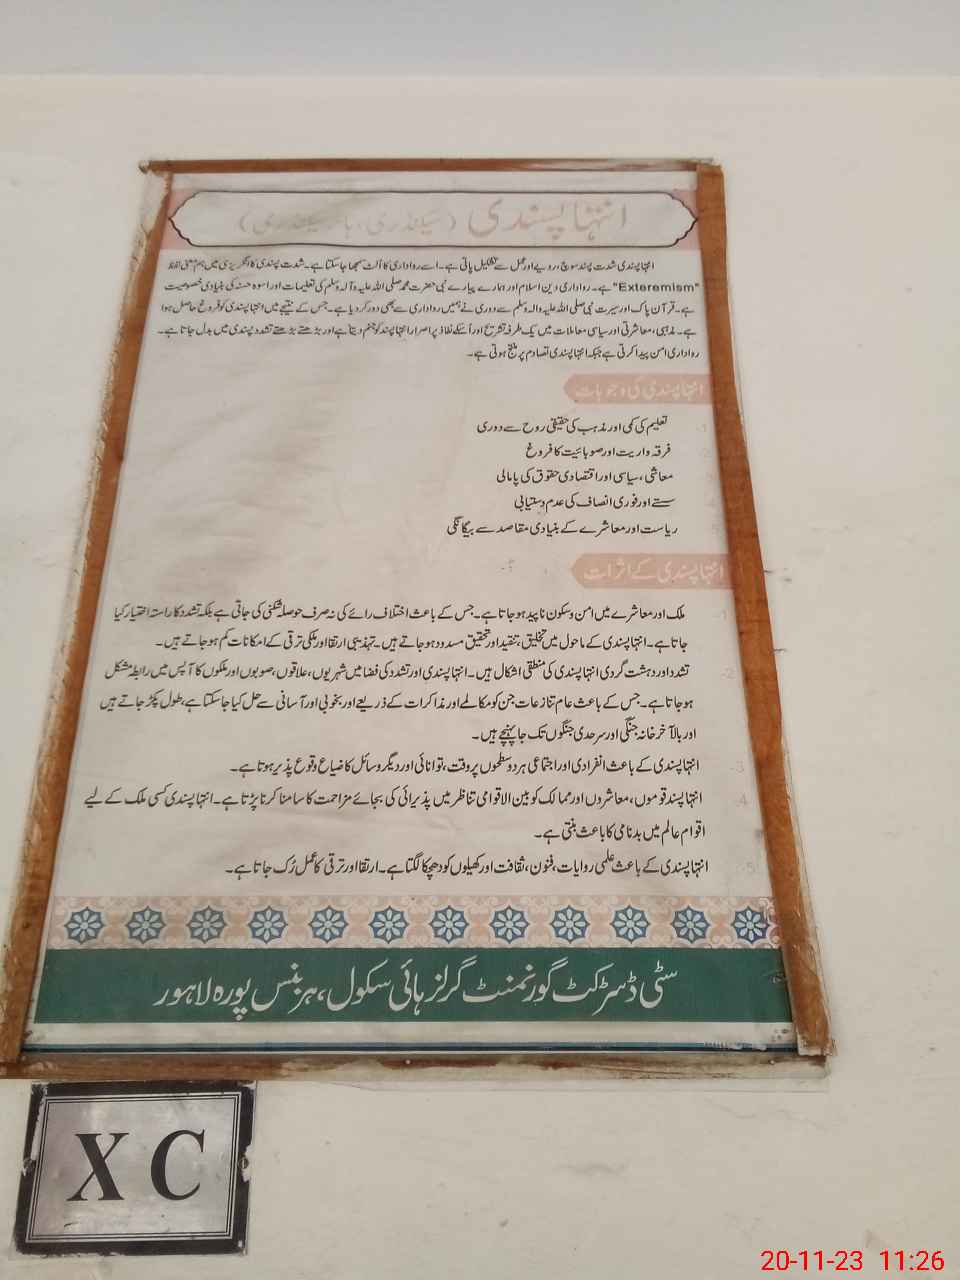 انتہا پسندی (سیکنڈری، ہائر سیکنڈری)
انتہا پسندی شدت پسند سوچ، رویے اور عمل سے تشکیل پاتی ہے۔ اسے رواداری کا اُلٹ سمجھا جاسکتا ہے۔ شدت پسندی کا انگریزی میں ہم معنی لفظ
"Exteremism" ہے۔ رواداری دین اسلام اور ہمارے پیارے نبی حضرت محمد صلی اللہ علیہ وآلہ وسلم کی تعلیمات اور اسوہ حسنہ کی بنیادی خصوصیت
ہے۔ قرآن پاک اور سیرت نبی صلی اللہ علیہ والہ وسلم سے دوری نے ہمیں رواداری سے بھی دور کر دیا ہے۔ جس کے نتیجے میں انتہا پسندی کو فروغ حاصل ہوا
ہے۔ مذہبی، معاشرتی اور سیاسی معاملات میں یک طرفہ تشریح اور اُسکے نفاذ پر اصرار انتہا پسند کو جنم دیتا ہے اور بڑھتے بڑھتے تشدد پسندی میں بدل جاتا ہے۔
رواداری امن پیدا کرتی ہے جبکہ انتہا پسندی تصادم پر منتج ہوتی ہے۔
انتہا پسندی کی وجوہات
1- تعلیم کی کمی اور مذہب کی حقیقی روح سے دوری
2- فرقہ واریت اور صوبائیت کا فروغ
معاشی، سیاسی اور اقتصادی حقوق کی پامالی
سستے اور فوری انصاف کی عدم دستیابی
5- ریاست اور معاشرے کے بنیادی مقاصد سے بیگانگی
انتہا پسندی کے اثرات
1- ملک اور معاشرے میں امن و سکون ناپید ہو جاتا ہے۔ جس کے باعث اختلاف رائے کی نہ صرف حوصلہ شکنی کی جاتی ہے بلکہ تشدد کا راستہ اختیار کیا
جاتا ہے۔ انتہا پسندی کے ماحول میں تخلیق، تنقید اور تحقیق مسدود ہو جاتے ہیں۔ تہذیبی ارتقا اور ملکی ترقی کے امکانات کم ہو جاتے ہیں۔
2- تشدد اور دہشت گردی انتہا پسندی کی منطقی اشکال ہیں۔ انتہا پسندی اور تشدد کی فضا میں شہریوں، علاقوں، صوبوں اور ملکوں کا آپس میں رابطہ مشکل
ہو جاتا ہے۔ جس کے باعث عام تنازعات جن کو مکالمے اور مذاکرات کے ذریعے اور بخوبی اور آسانی سے حل کیا جاسکتا ہے، طول پکڑ جاتے ہیں
اور بالآخر خانہ جنگی اور سرحدی جنگوں تک جا پہنچتے ہیں۔
3- انتہا پسندی کے باعث انفرادی اور اجتماعی ہر دو سطحوں پر وقت، توانائی اور دیگر وسائل کا ضیاع وقوع پذیر ہوتا ہے۔
4- انتہا پسند قوموں، معاشروں اور ممالک کو بین الاقوامی تناظر میں پذیرائی کی بجائے مزاحمت کا سامنا کرنا پڑتا ہے۔ انتہا پسندی کسی ملک کے لیے
اقوام عالم میں بدنامی کا باعث بنتی ہے۔
5- انتہا پسندی کے باعث علمی روایات، فنون، ثقافت اور کھیلوں کو دھچکا لگتا ہے۔ ارتقا اور ترقی کا عمل رُک جاتا ہے۔
سٹی ڈسٹرکٹ گورنمنٹ گرلز ہائی سکول، ہربنس پورہ لاہور
X C
20-11-23 11:26